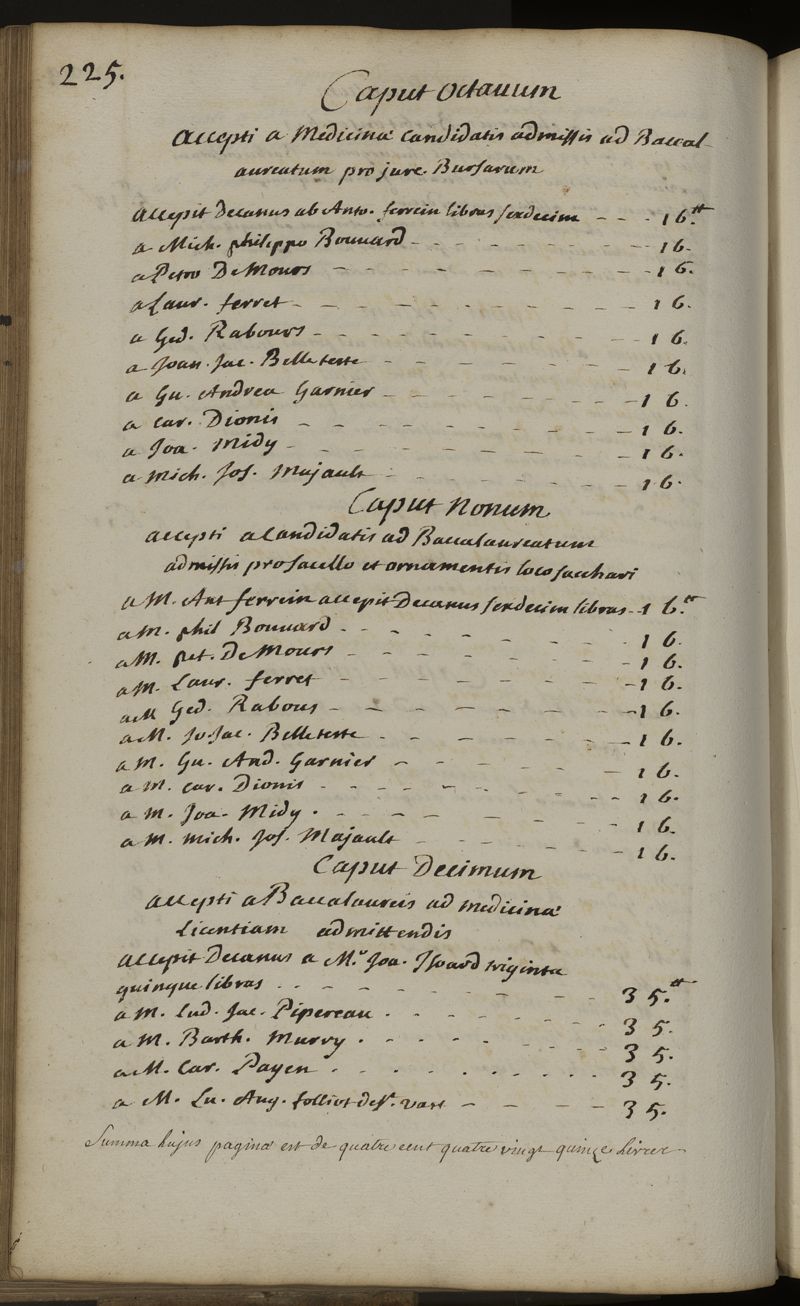 225.
Caput octavum
accepti a Medicinæ candidatis admissis ad Baccal-
aureatum pro jure Bursarum
accepit Decanus ab Anto. ferrein libras sexdecim - - - 16.tt
a Mich. philippo Bouvard - - - - - - - - 16.
a Petro DeMours - - - - - - - - - 16.
a Laur. ferret - - - - - - - - - - 16.
a Ged. Rabours - - - - - - - - - 16.
a Joan. Jac. Belleteste - - - - - - - 16.
a Gu. Andrea Garnier - - - - - - - 16.
a car. Dionis - - - - - - - - - - 16.
a Joa. Midy - - - - - - - - - - 16.
a mich. Jos. Majault - - - - - - - - 16.
Caput Nonum
accepti a Candidatis ad Baccalaureatum
admissis pro sacello et ornamentis loco sacchari
a M. Ant ferrein accepit Decanus sexdecim libras - 16.tt
a m. phil Bouvard - - - - - - - - 16.
a M. pet. DeMours - - - - - - - - 16.
a M. Laur. ferret - - - - - - - - 16.
a M Ged. Rabous - - - - - - - - 16.
a M. Jo. Jac. Belleteste - - - - - - - 16.
a M. Gu. And. Garnier - - - - - - 16.
a m. car. Dionis - - - - - - - - 16.
a m. Joa. Midy - - - - - - - - 16.
a m. mich. Jos. Majault - - - - - - 16.
Caput Decimum
accepti a Baccalaureis ad medicinæ
Licentiam admittendis
accepit Decanus a M.r Joa. Isoard triginta
quinque libras - - - - - - - - - 35.tt
a m. Lud. Jac. Pipereau . - - - - - - 35.
a M. Barth. Murry . - - - - - - - 35.
a M. Car. Payen . . . . . . . . . 35.
a M. Lu. Aug. folliot des.t vast - - - - 35.
Summa hujus paginæ est de quatre cent quatre vingt quinze Livres -